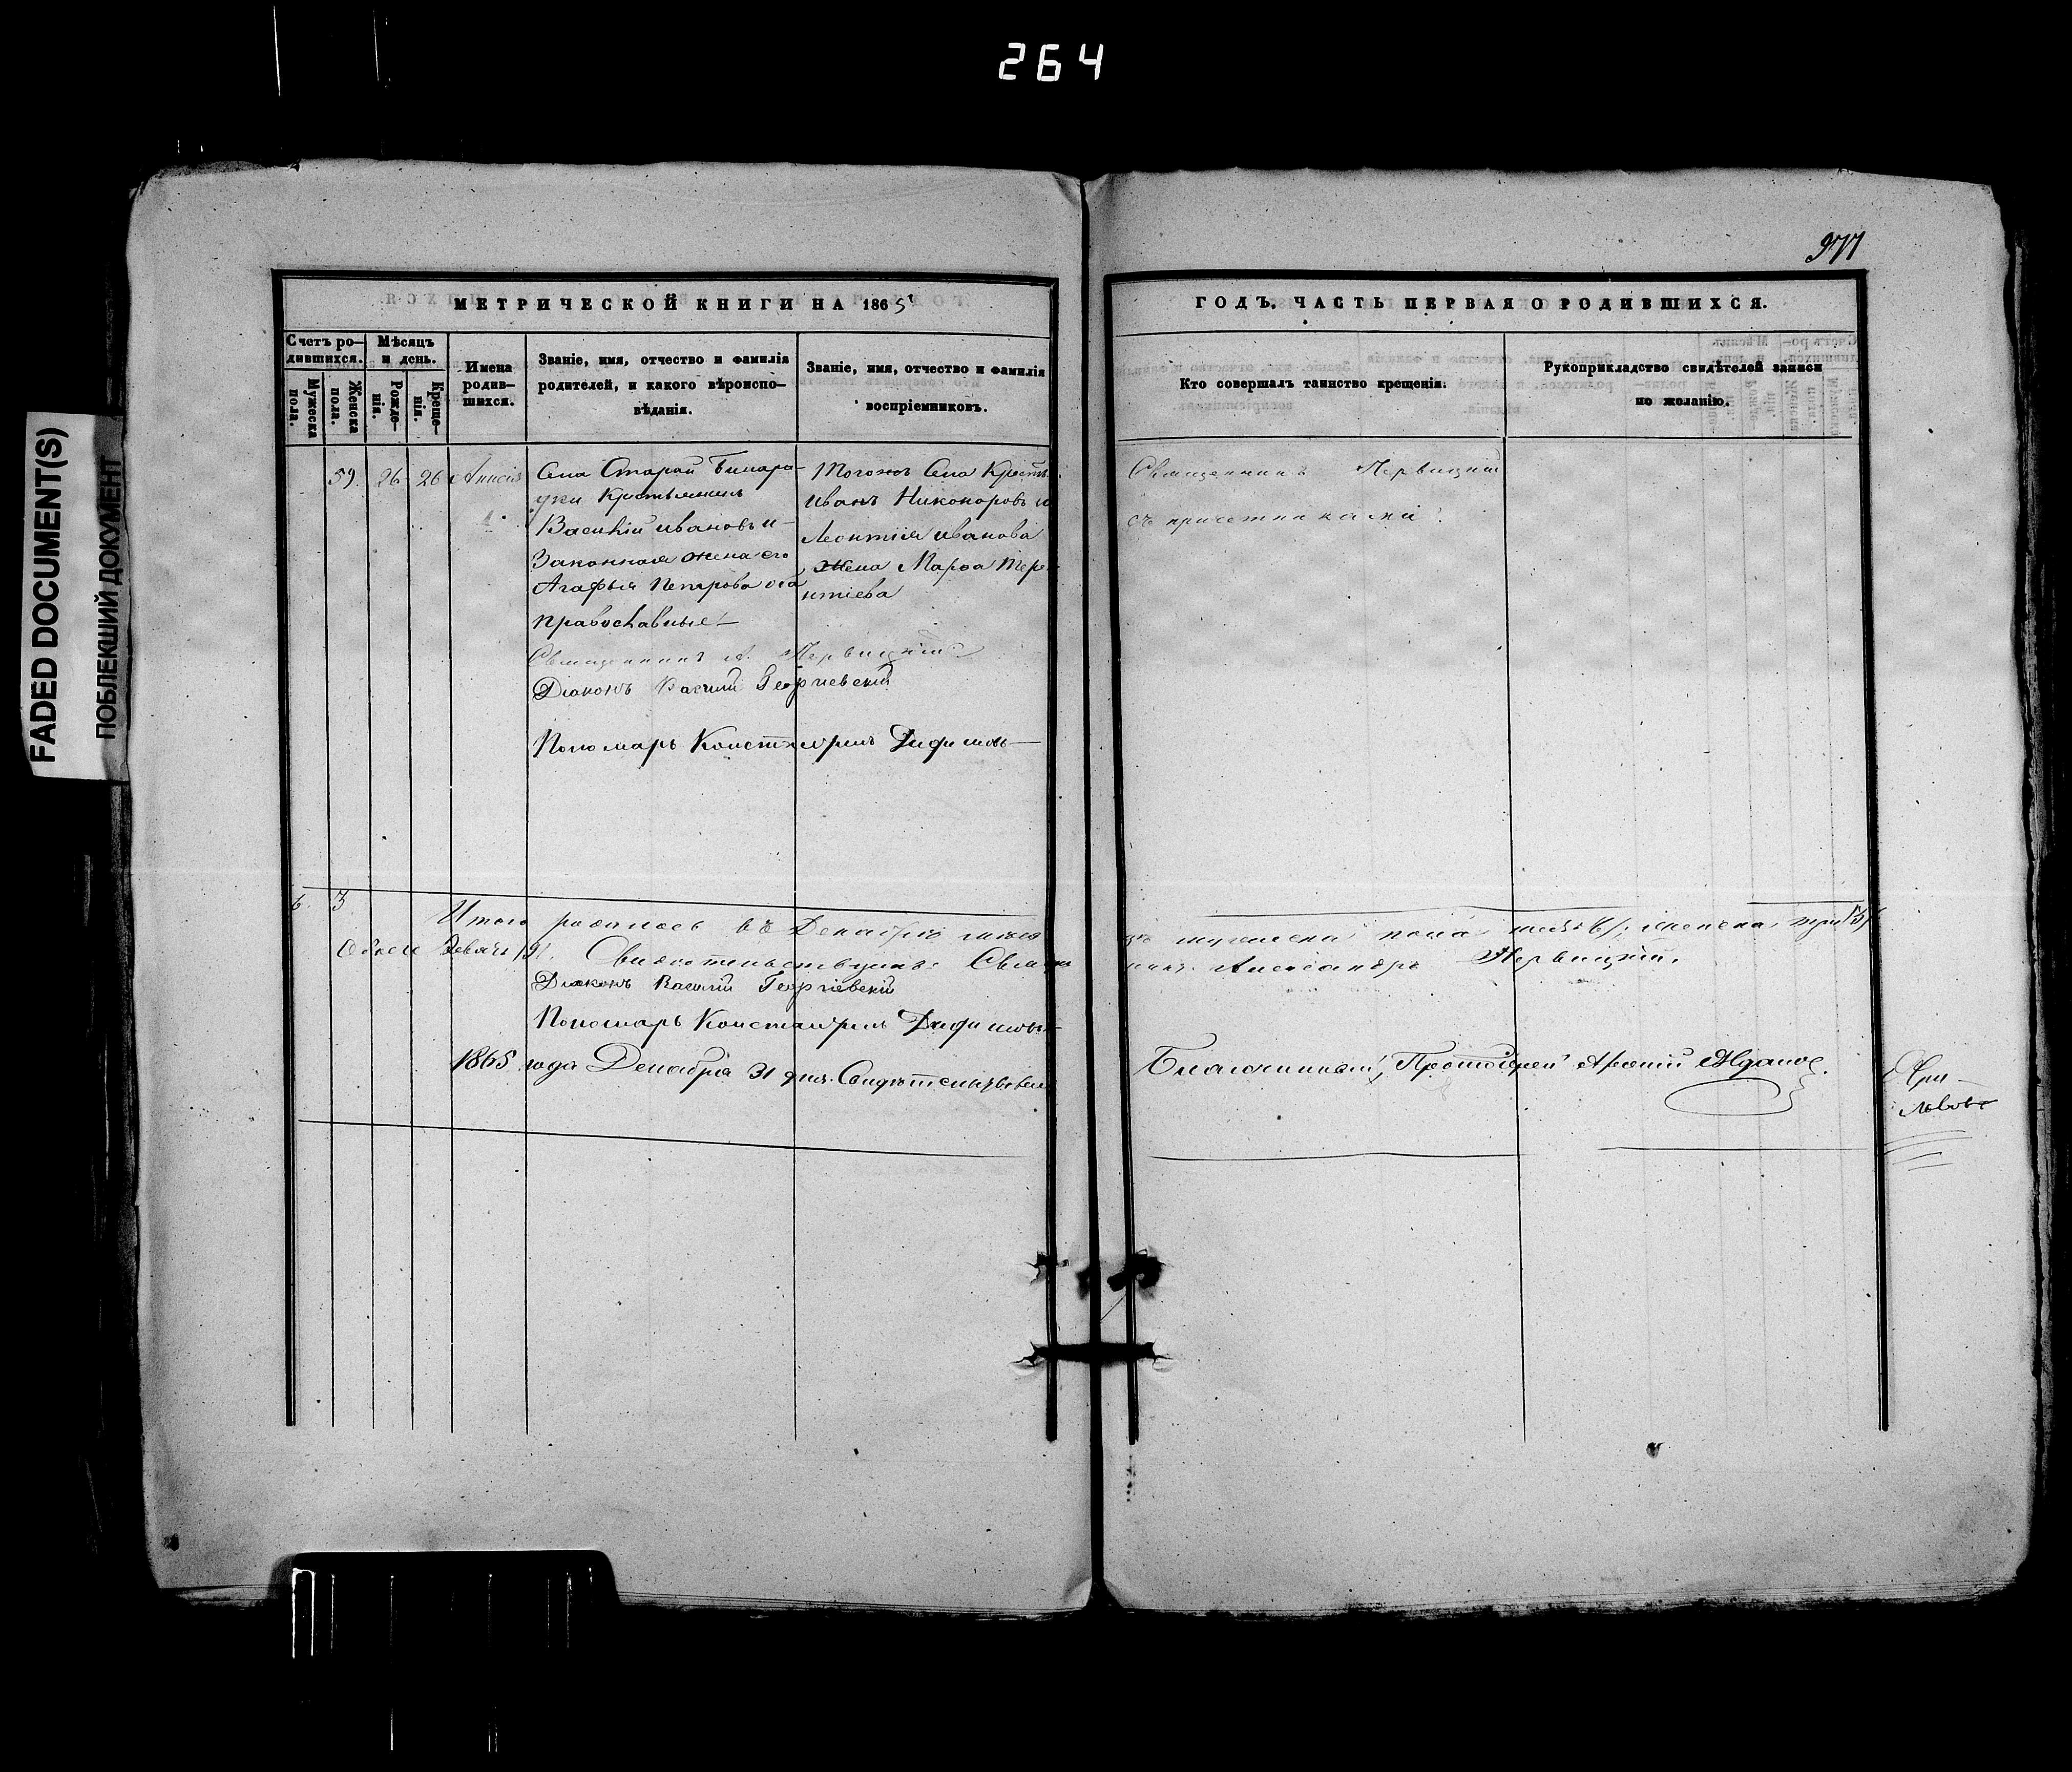 264
977
FADED DOCUMENT(S)
ПОБЛЕКШИЙ ДОКУМЕНТ
МЕТРИЧЕСКОЙ КНИГИ НА 1865
ГОДЪ. ЧАСТЬ ПЕРВАЯ О РОДИВШИХСЯ.
Счетъ ро-
дившихся.
Мужеска
пола.
Женска
пола.
Мѣсяцъ
и день.
Рожде-
нія.
Креще-
нія.
Имена
родив-
шихся.
Званіе, имя, отчество и фамилія
родителей, и какого вѣроиспо-
вѣданія.
Званіе, имя, отчество и фамилія
воспріемниковъ.
Кто совершалъ таинство крещенія.
Рукоприкладство свидѣтелей записи
по желанію.
59 26 26 Анисія
Села Старой
Крестьянинъ
Василій Ивановъ и
Законная жена его
Агафья Петрова оба
православные
Тогожъ Села Крестьян
Иванъ Никоноровъ и
Леонтія Иванова
жена Марѳа Тере-
нтіева
Священникъ Первицкій
съ причетниками.
Священникъ А. Первицкій
Діаконъ Василій Георгіевскій
Пономарь Константинъ
6. 3
Итого родилось въ Декабрѣ
мужеска пола женска три
Обоего Девять /9/. Свидѣтельствуемъ: Священ
никъ Александръ Первицкій.
Діаконъ Василій Георгіевскій
Пономарь Константинъ
1865 года Декабря 31 дня.
Благочинный, Протоіерей Арсеній